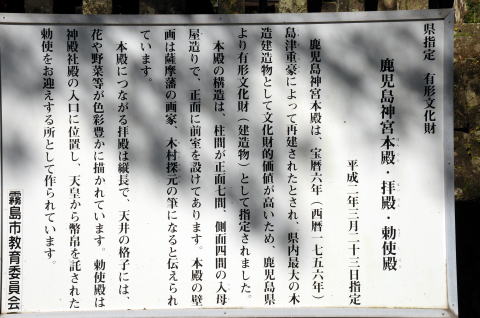 県指定　有形文化財
鹿児島神宮本殿・拝殿・勅使殿
平成二年三月二十三日指定
鹿児島神宮本殿は、宝暦六年（西暦一七五六年）
島津重豪によって再建されたとされ、県内最大の木
造建造物として文化財的価値が高いため、鹿児島県
より有形文化財（建造物）として指定されました。
本殿の構造は、柱間が正面七間、側面四間の入母
屋造りで、正面に前室を設けてあります。本殿の壁
画は薩摩藩の画家、木村探元の筆になると伝えられ
ています。
本殿につながる拝殿は縦長で、天井の格子には、
花や野菜等が色彩豊かに描かれています。勅使殿は
神殿社殿の入口に位置し、天皇から幣帛を託された
勅使をお迎えする所として作られています。
霧島市教育委員会